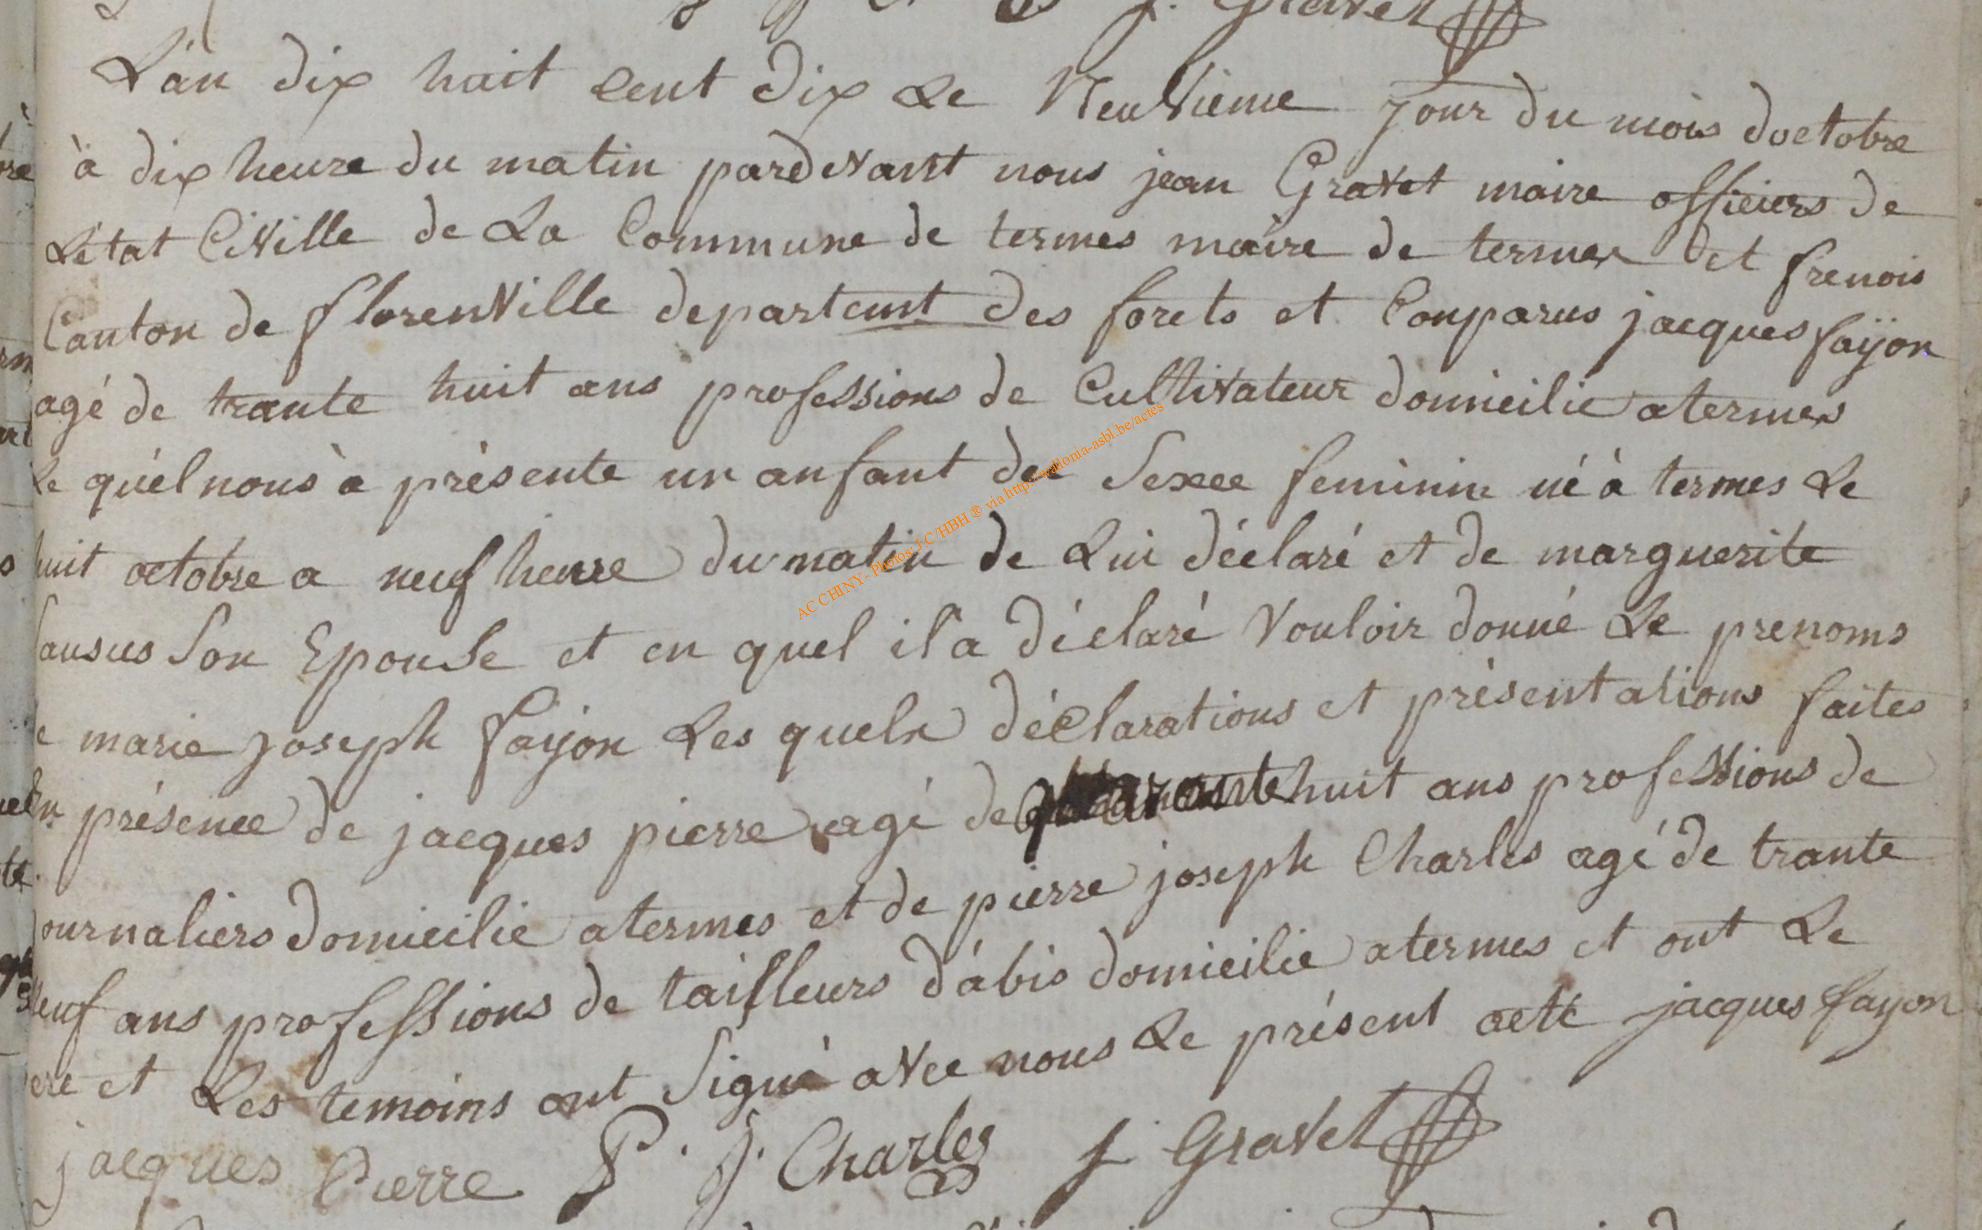 J. Gravet
L'an dix huit cent dix Le Neuvieme jour du mois doctobre
à dix heure du matin pardevant nous jean Gravet maire officiers de
Létat Civille de La Commune de termes maire de termes et frenois
Canton de florenville departemt des forets et Comparus jacques faÿon
agé de trante huit ans professions de Cultivateur domicilie atermes
Le quél nous à présente un anfant de Sexee feminin né à termes Le
huit octobre a neuf heure du matin de Lui déclaré et de marguerite
Son Epouse et en quel il a déclaré Vouloir donné Le prenoms
marie joseph faijon Les quels déclarations et présentations faites
En présence de jacques pierre agé de quarante huit ans professions de
journaliers domicilie atermes et de pierre joseph Charles agé de trante
neuf ans professions de tailleurs d'abis domicilie atermes et ont Le
pere et Les temoins ont Signé avec nous Le présent acte jacques fayon
jacques Pierre P. J. Charles J. Gravet
AC CHINY - Photos J.C/HBH ® via